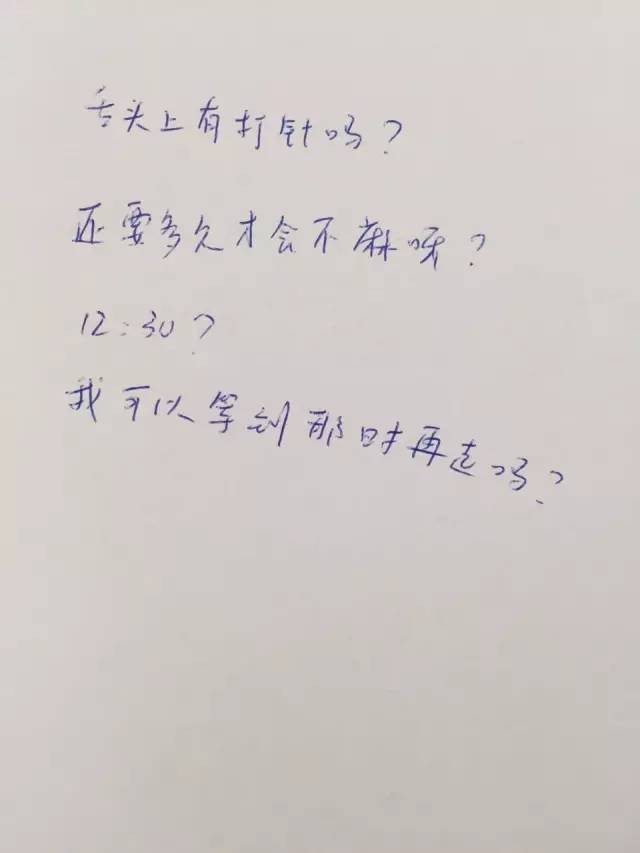 舌头上有打针吗?
还要多久才会不麻呀?
12:30?
我可以等到那时再走吗?